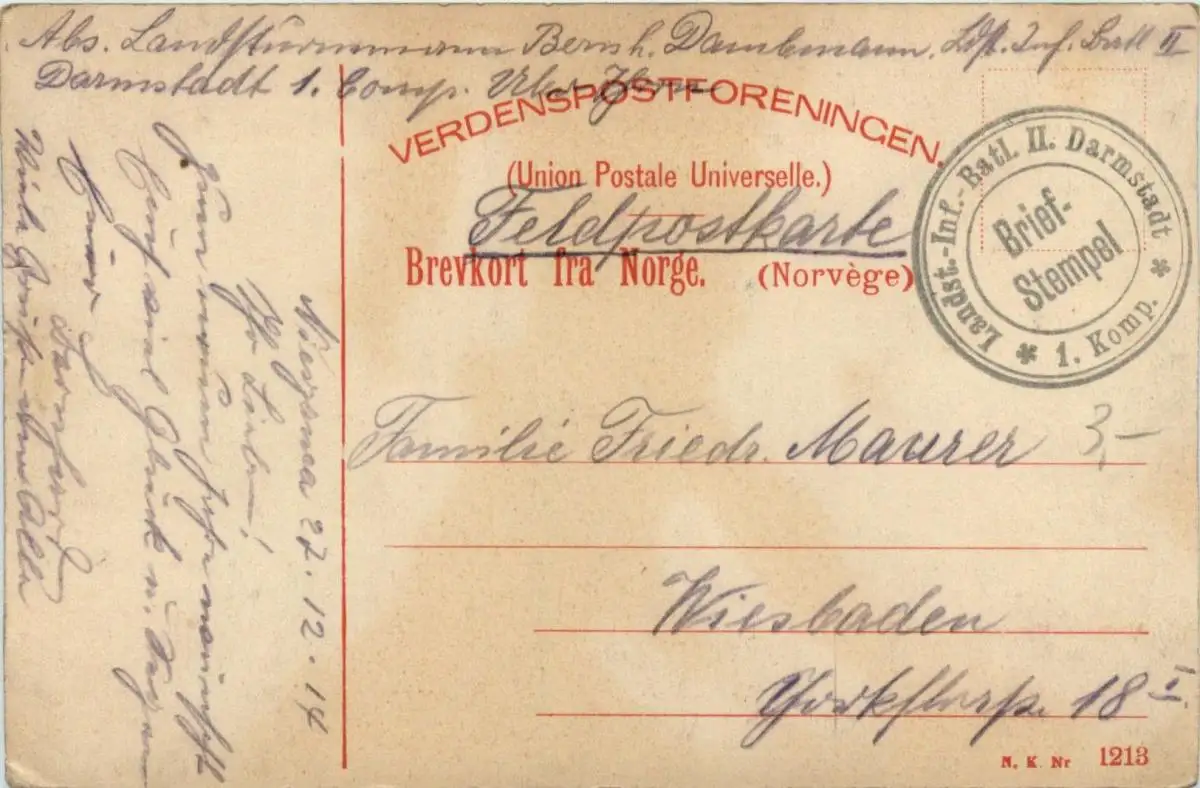 Abs. Landsturmmann Bernh. Dambmann. Ldst. Inf. Batl II
Darmstadt 1. Comp.
VERDENSPOSTFORENINGEN.
(Union Postale Universelle.)
Feldpostkarte
Brevkort fra Norge. (Norvège)
Landst.-Inf.-Batl. II. Darmstadt
1. Komp.
Brief-
Stempel
Familie Friedr. Maurer
3,–
Wiesbaden
Yorkstraße 18 I
N. K. Nr 1213
27. 12. 14
Ihr Lieben!
Zum neuen Jahre wünscht
Euch viel Glück u. Segen
Euer